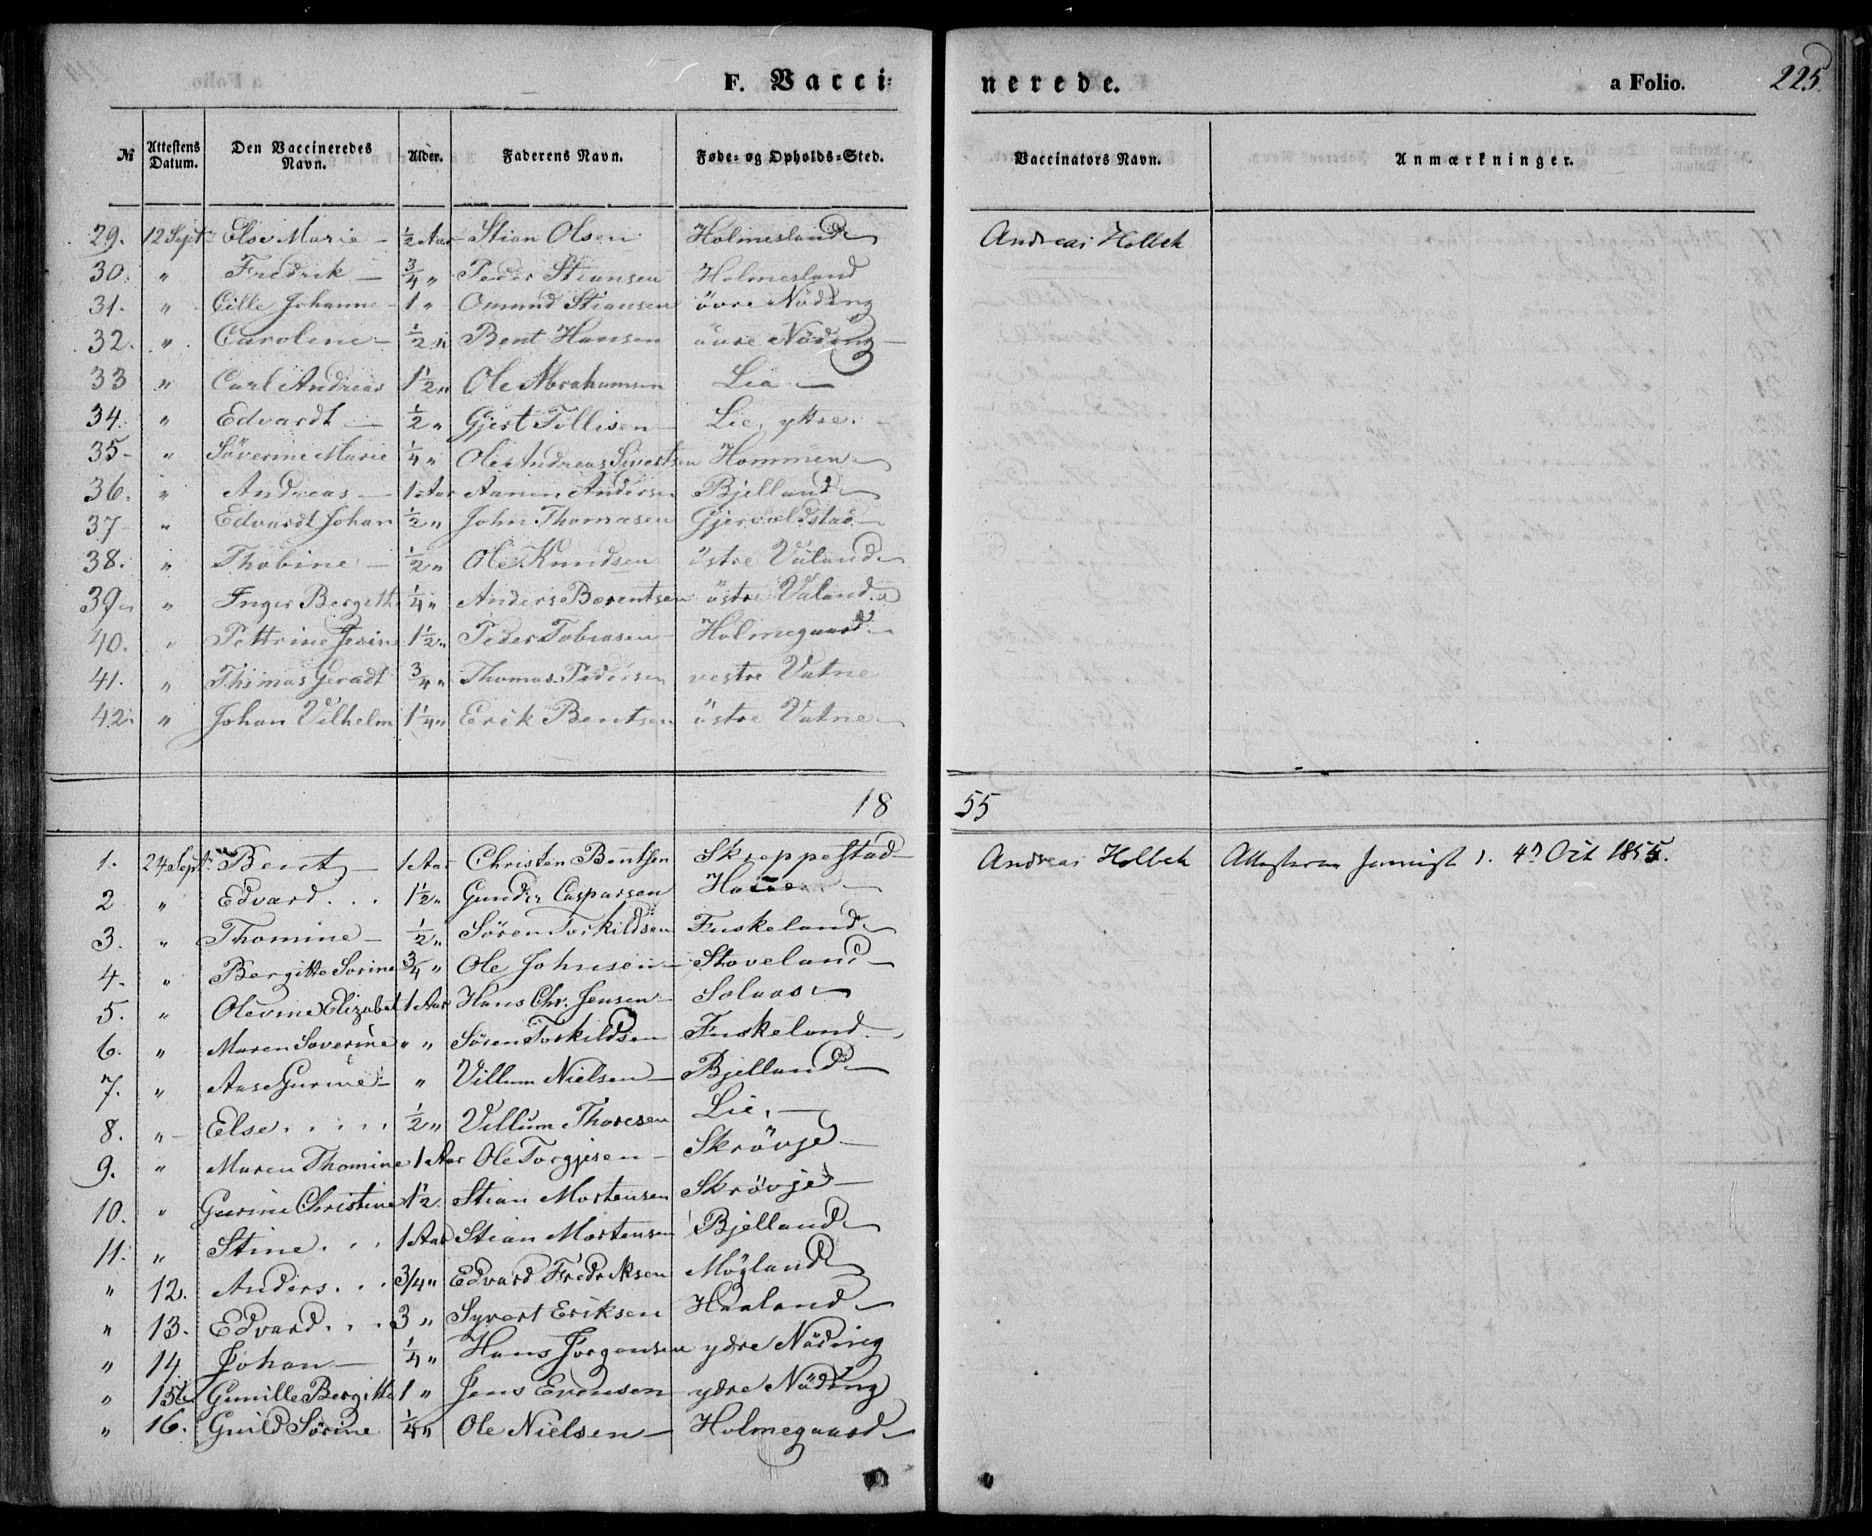 F. Vacci-nerede. a Folio. 225.
№ Attestens Datum. Den Vaccineredes Navn. Alder. Faderens Navn. Føde- og Opholds-Sted. Vaccinators Navn. Anmærkninger.
29. 12 Sept Else Marie - ½ Aar Stian Olsen Holmesland Andreas Holbek
30. " Fredrik - ¾ " Peder Stiansen Holmesland
31. " Cille Johanne - 1 " Omund Stiansen övre Nöding
32. " Caroline - ½ " Bent Hansen övre Nöding
33 " Carl Andreas 1½ " Ole Abrahamsen Lia
34. " Edvardt - ½ " Gjert Tollisen Lie, yttre.
35 - " Söverine Marie ¼ " Ole Andreas Sivertsen Hommen
36. " Andreas - 1 Aar Aanen Andersen Bjelland
37 - " Edvardt Johan ½ " John Thomasen Gjervoldstad
38. " Thobine - ½ " Ole Knudsen östre Valand
39. " Inger Bergithe ¼ " Anders Berentsen östre Valand
40. " Pettrine Jesine 1½ " Peder Tobiasen Holmegaard
41. " Thomas Geradt ¾ " Thomas Pedersen vestre Vatne
42. " Johan Vilhelm 1¼ " Erik Bentsen östre Vatne
18 55
1. 24 Sept. Bent - 1 Aar Christen Bentsen Skreppestad Andreas Holbek 4d Oct 1855.
2 " Edvard . . . 1½ " Gunder Casparsen
3. " Thomine - ½ " Sören Torkildsen Fuskeland
4. " Bergitte Sorine ¾ " Ole Johnsen - Stoveland
5. " Olevine Elizabet 1 Aar Hans Chr. Jensen - Solaas
6. " Maren Soverine " " Sören Torkildsen Fuskeland
7. " Aase Gurine - " Villum Nielsen - Bjelland
8. " - Else . . . . . ½ " Villum Thoresen Lie, -
9. " Maren Thomine 1 Aar Ole Torgjusen - Skrövje -
10. " Gurine Christine 1½ Stian Mortensen Skrövje -
11. " Stine . . . 1 Aar Stian Mortensen Bjelland
" 12. Anders . . . 3/4 " Edvard Fredriksen Mögland
" 13. Edvard . . . 3 " Syvert Eriksen Haaland
" 14 Johan - ¼ " Hans Jörgensen ydre Nöding
" 15 Gunille Bergithe 1 " Jens Evensen ydre Nöding
" 16. Guild Sörine ¼ " Ole Nielsen - Holmegaard